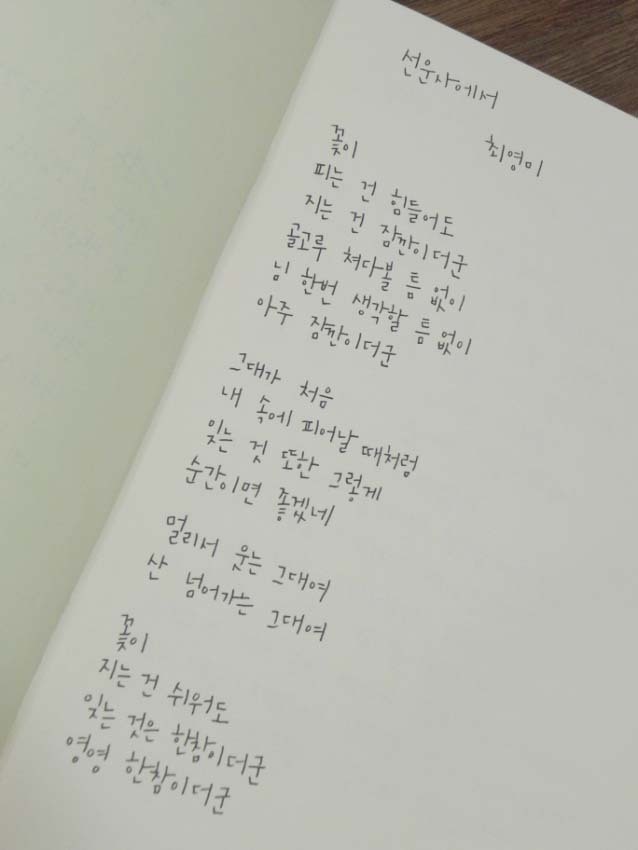 선운사에서
최영미
꽃이
피는 건 힘들어도
지는 건 잠깐이더군
골고루 쳐다볼 틈 없이
님 한번 생각할 틈 없이
아주 잠깐이더군
그대가 처음
내 속에 피어날 때처럼
잊는 것 또한 그렇게
순간이면 좋겠네
멀리서 웃는 그대여
산 넘어가는 그대여
꽃이
지는 건 쉬워도
잊는 것은 한참이더군
영영 한참이더군